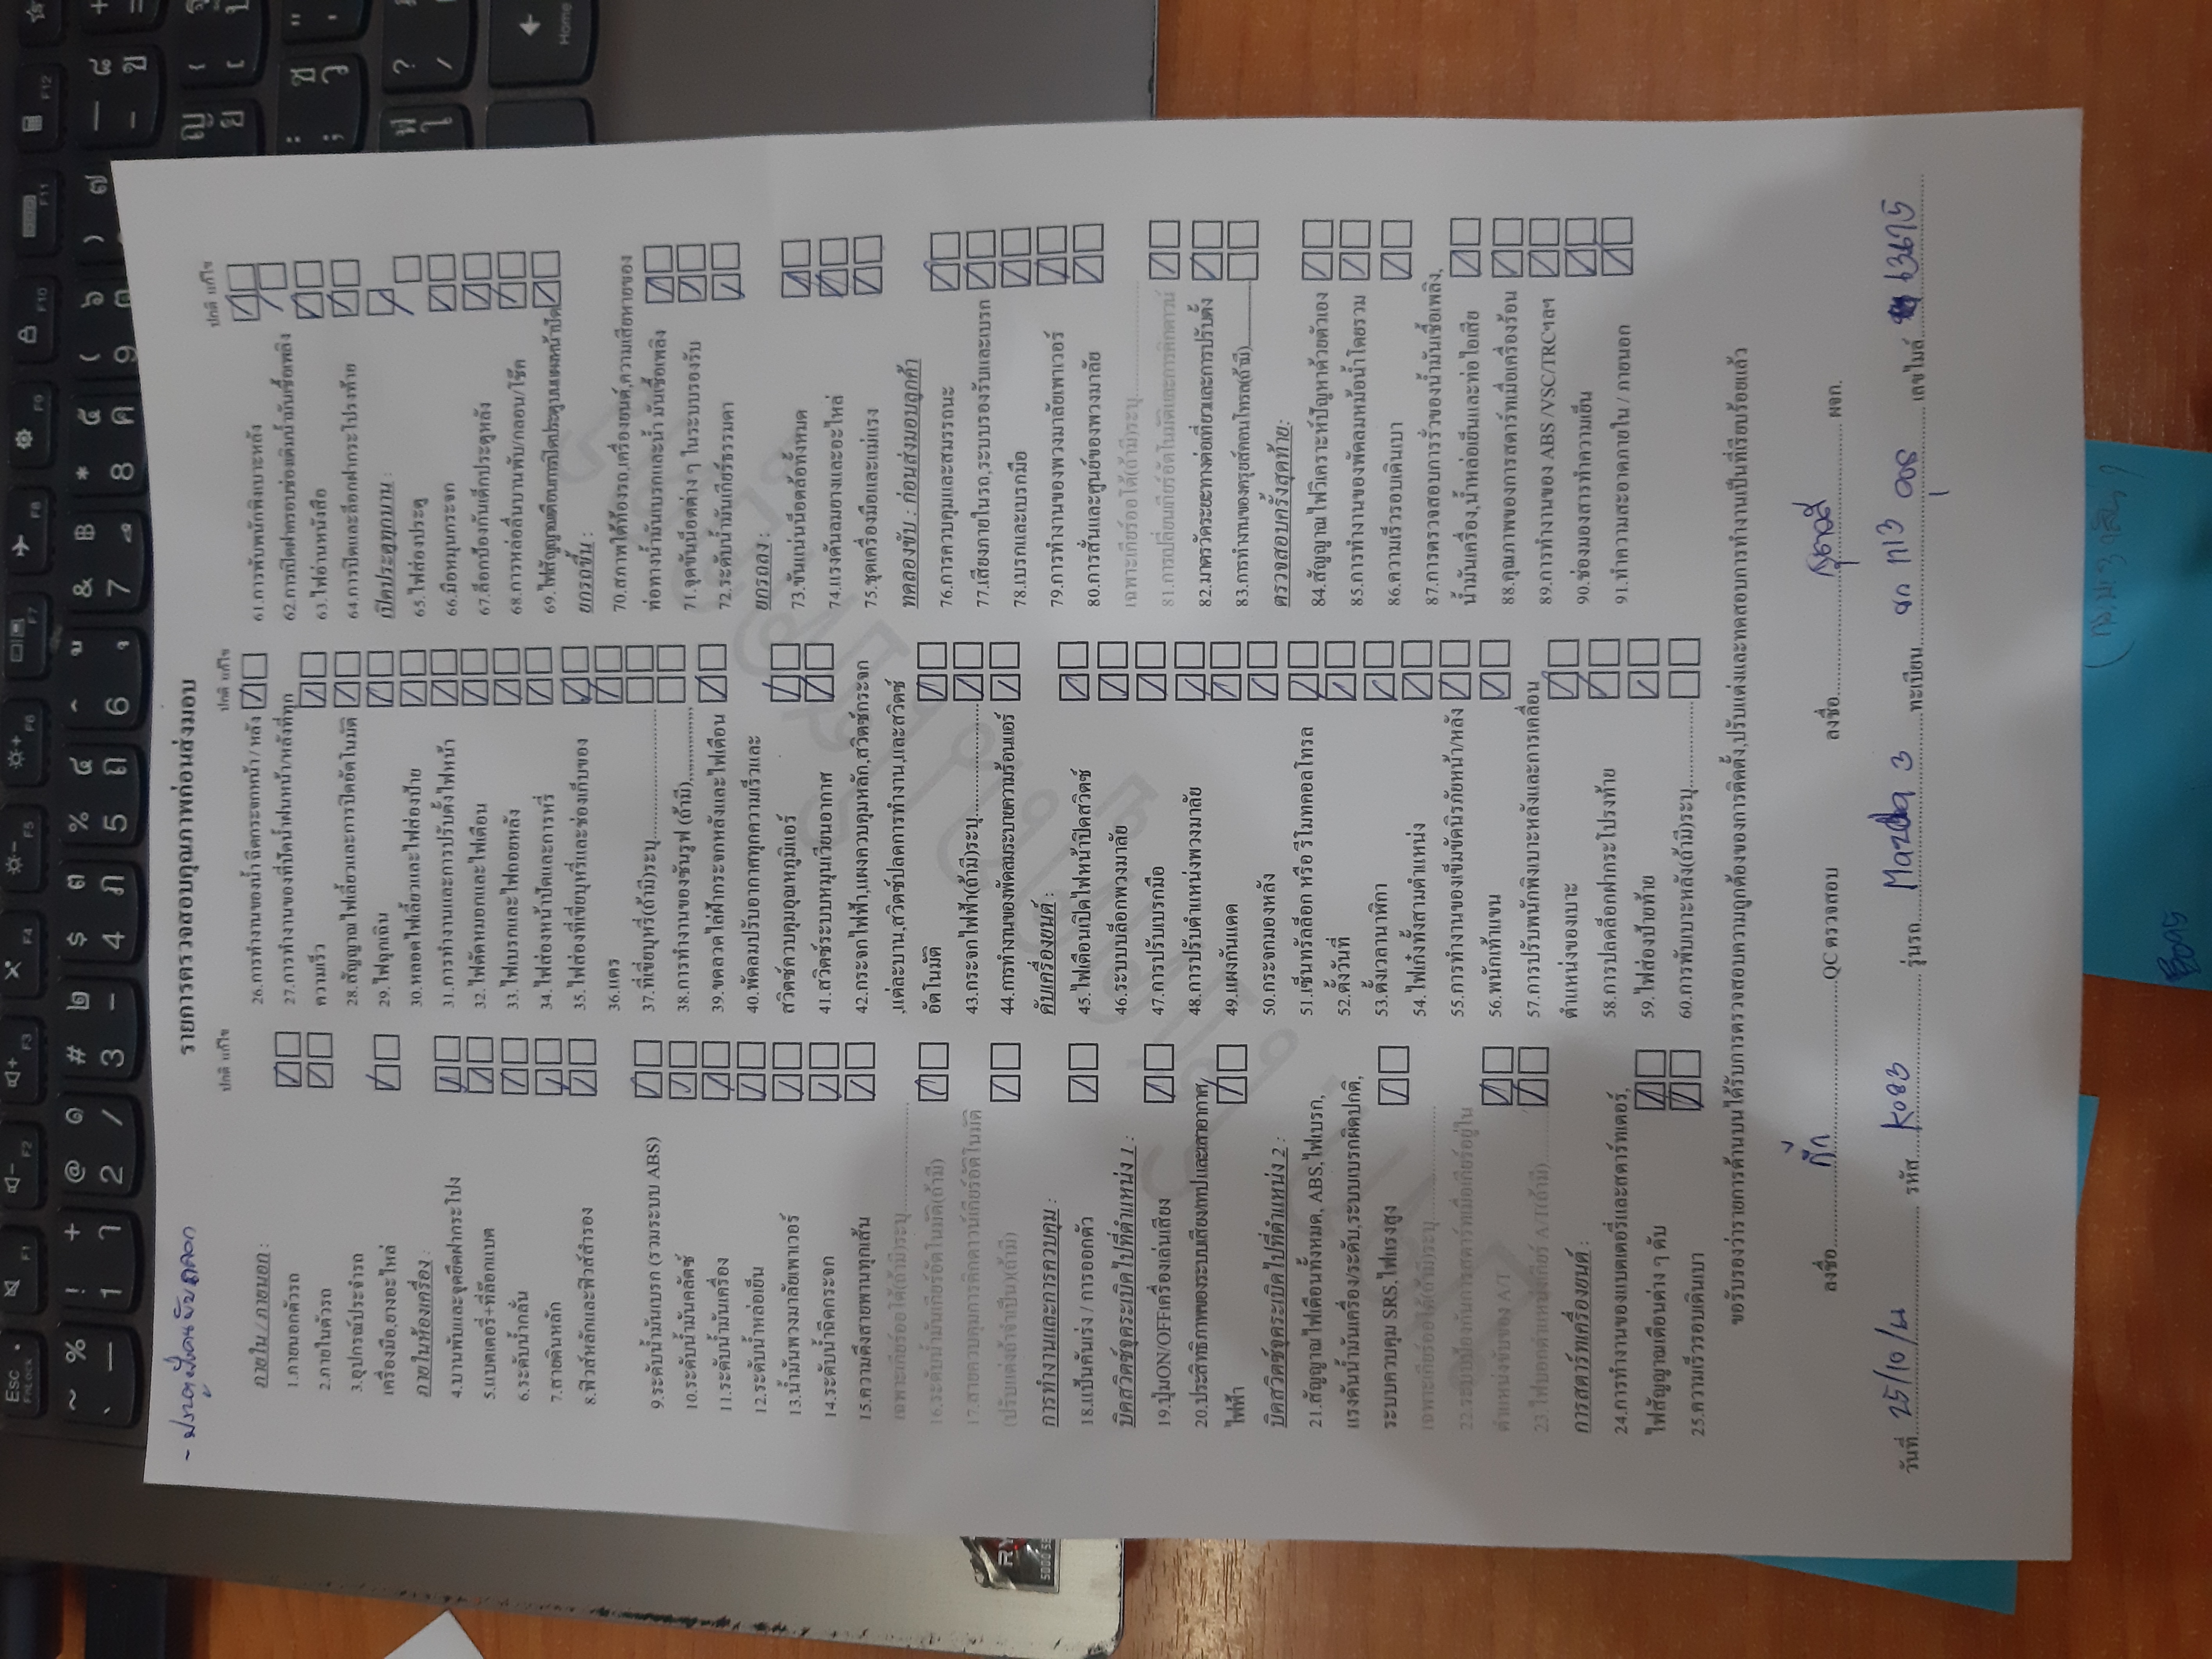 รายการตรวจสอบคุณภาพก่อนส่งมอบ
ปกติ แก้ไข
ภายใน / ภายนอก :
1.ภายนอกตัวรถ
2.ภายในตัวรถ
3.อุปกรณ์ประจำรถ
เครื่องมือ,ยางอะไหล่
ภายในห้องเครื่อง :
4.บานพับและจุดยึดฝากระโปง
5.แบตเตอรี่+ที่ล๊อกแบต
6.ระดับน้ำกลั่น
7.สายดินหลัก
8.ฟิวส์หลักและฟิวส์สำรอง
9.ระดับน้ำมันเบรก (รวมระบบ ABS)
10.ระดับน้ำมันคลัตช์
11.ระดับน้ำมันเครื่อง
12.ระดับน้ำหล่อเย็น
13.น้ำมันพวงมาลัยพาวเวอร์
14.ระดับน้ำฉีดกระจก
15.ความตึงสายพานทุกเส้น
เฉพาะเกียร์ออโต้(ถ้ามี)ระบุ
16.ระดับน้ำมันเกียร์อัตโนมัติ(ถ้ามี)
17.สายควบคุมการคิกดาวน์เกียร์อัตโนมัติ
(ปรับแต่งถ้าจำเป็น)(ถ้ามี)
การทำงานและการควบคุม :
18.แป้นคันเร่ง / การออกตัว
บิดสวิตช์จุดระเบิดไปที่ตำแหน่ง 1 :
19.ปุ่มON/OFFเครื่องเล่นเสียง
20.ประสิทธิภาพของระบบเสียง/เทปและเสาอากาศ
ไฟฟ้า
บิดสวิตช์จุดระเบิดไปที่ตำแหน่ง 2 :
21.สัญญาณไฟเตือนทั้งหมด, ABS,ไฟเบรก,
แรงดันน้ำมันเครื่อง/ระดับ,ระบบเบรกผิดปกติ,
ระบบควบคุม SRS,ไฟแรงสูง
เฉพาะเกียร์ออโต้(ถ้ามี)ระบุ
22.ระบบป้องกันการสตาร์ทเมื่อเกียร์อยู่ใน
ตำแหน่งขับของ A/T
23.ไฟบอกตำแหน่งเกียร์ A/T(ถ้ามี)
การสตาร์ทเครื่องยนต์ :
24.การทำงานของแบตเตอรี่และสตาร์ทเตอร์,
ไฟสัญญาณเตือนต่าง ๆ ดับ
25.ความเร็วรอบเดินเบา
ปกติ แก้ไข
26.การทำงานของน้ำฉีดกระจกหน้า / หลัง
27.การทำงานของที่ปัดน้ำฝนหน้า/หลังที่ทุก
ความเร็ว
28.สัญญาณไฟเลี้ยวและการปิดอัตโนมัติ
29.ไฟฉุกเฉิน
30.หลอดไฟเลี้ยวและไฟส่องป้าย
31.การทำงานและการปรับตั้งไฟหน้า
32.ไฟตัดหมอกและไฟเตือน
33.ไฟเบรกและไฟถอยหลัง
34.ไฟส่องหน้าปัดและการหรี่
35.ไฟส่องที่เขี่ยบุหรี่และช่องเก็บของ
36.แตร
37.ที่เขี่ยบุหรี่(ถ้ามี)ระบุ
38.การทำงานของซันรูฟ (ถ้ามี)
39.ขดลวดไล่ฝ้ากระจกหลังและไฟเตือน
40.พัดลมปรับอากาศทุกความเร็วและ
สวิตช์ควบคุมอุณหภูมิแอร์
41.สวิตซ์ระบบหมุนเวียนอากาศ
42.กระจกไฟฟ้า,แผงควบคุมหลัก,สวิตซ์กระจก
,แต่ละบาน,สวิตซ์ปลดการทำงาน,และสวิตซ์
อัตโนมัติ
43.กระจกไฟฟ้า(ถ้ามี)ระบุ
44.การทำงานของพัดลมระบายความร้อนแอร์
ดับเครื่องยนต์ :
45.ไฟเตือนเปิดไฟหน้าปิดสวิตซ์
46.ระบบบล็อกพวงมาลัย
47.การปรับเบรกมือ
48.การปรับตำแหน่งพวงมาลัย
49.แผงกันแดด
50.กระจกมองหลัง
51.เซ็นทรัลล็อก หรือ รีโมทคอลโทรล
52.ตั้งวันที่
53.ตั้งเวลานาฬิกา
54.ไฟเก๋งทั้งสามตำแหน่ง
55.การทำงานของเข็มขัดนิรภัยหน้า/หลัง
56.พนักเท้าแขน
57.การปรับพนักพิงเบาะหลังและการเคลื่อน
ตำแหน่งของเบาะ
58.การปลดล็อกฝากระโปรงท้าย
59.ไฟส่องป้ายท้าย
60.การพับเบาะหลัง(ถ้ามี)ระบุ
ปกติ แก้ไข
61.การพับพนักพิงเบาะหลัง
62.การเปิดฝาครอบช่องเติมน้ำมันเชื้อเพลิง
63.ไฟอ่านหนังสือ
64.การปิดและล็อกฝากระโปรงท้าย
เปิดประตูทุกบาน :
65.ไฟส่องประตู
66.มือหมุนกระจก
67.ล็อกป้องกันเด็กประตูหลัง
68.การหล่อลื่นบานพับ/กลอน/โช๊ค
69.ไฟสัญญาณเตือนการปิดประตูบนแผงหน้าปัด
ยกรถขึ้น :
70.สภาพใต้ท้องรถ,เครื่องยนต์,ความเสียหายของ
ท่อทางน้ำมันเบรกและน้ำมันเชื้อเพลิง
71.จุดขันน็อตต่าง ๆ ในระบบรองรับ
72.ระดับน้ำมันเกียร์ธรรมดา
ยกรถลง :
73.ขันแน่นน็อตล้อทั้งหมด
74.แรงดันลมยางและอะไหล่
75.ชุดเครื่องมือและแม่แรง
ทดลองขับ : ก่อนส่งมอบลูกค้า
76.การควบคุมและสมรรถนะ
77.เสียงภายในรถ,ระบบรองรับและเบรก
78.เบรกและเบรกมือ
79.การทำงานของพวงมาลัยเพาเวอร์
80.การสั่นและศูนย์ของพวงมาลัย
เฉพาะเกียร์ออโต้(ถ้ามี)ระบุ
81.การเปลี่ยนเกียร์อัตโนมัติและการคิกดาวน์
82.มาตรวัดระยะทางต่อเที่ยวและการปรับตั้ง
83.การทำงานของครูยส์คอนโทรล(ถ้ามี)
ตรวจสอบครั้งสุดท้าย:
84.สัญญาณไฟวิเคราะห์ปัญหาด้วยตัวเอง
85.การทำงานของพัดลมหม้อน้ำโดยรวม
86.ความเร็วรอบเดินเบา
87.การตรวจสอบการรั่วของน้ำมันเชื้อเพลิง,
น้ำมันเครื่อง,น้ำหล่อเย็นและท่อไอเสีย
88.คุณภาพของการสตาร์ทเมื่อเครื่องร้อน
89.การทำงานของ ABS /VSC/TRCฯลฯ
90.ช่องมองสารทำความเย็น
91.ทำความสะอาดภายใน / ภายนอก
ขอรับรองว่ารายการด้านบนได้รับการตรวจสอบความถูกต้องของการติดตั้ง,ปรับแต่งและทดสอบการทำงานเป็นที่เรียบร้อยแล้ว
ลงชื่อ กั๊ก QC ตรวจสอบ ลงชื่อ ผจก.
วันที่ 25/10/ รหัส K083 รุ่นรถ Mazda 3 ทะเบียน เลขไมล์ 63675